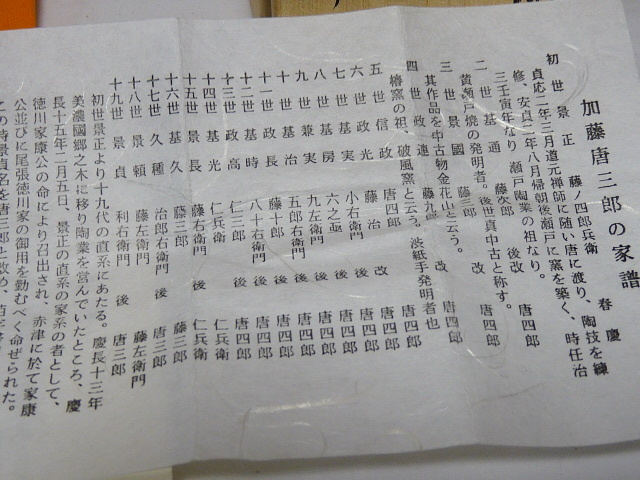 加藤唐三郎の家譜
初世景正 藤ノ四郎兵衛 春慶
貞応二年三月道元禅師に随い唐に渡り、陶技を練
修、安貞二年八月帰朝後瀬戸に窯を築く、時任治
三壬寅年なり 瀬戸陶業の祖なり。
二世基通 藤次郎 後改 唐四郎
黄瀬戸焼の発明者。後世真中古と称す。
三世景國 藤三郎 改 唐四郎
其作品を中古物金花山と云う。
四世政連 藤九郎 改 唐四郎
椿窯の祖 破風窯と云う。渋紙手発明者也
五世信政 唐四郎
六世政光 藤治 改 唐四郎
七世基実 小右衛門 後 唐四郎
八世房 六之亟 後 唐四郎
九世兼実 九左衛門 後 唐四郎
十世基治 五郎右衛門 後 唐四郎
十一世景長 藤十郎 後 唐四郎
十二世基時 八十右衛門 後 唐四郎
十三世政高 仁三郎 後 唐四郎
十四世基光 仁兵衛 仁兵衛
十五世景長 藤右衛門 後 仁兵衛
十六世基久 藤三郎 藤三郎
十七世久種 治郎右衛門 後 唐三郎
十八世景頼 藤左衛門 藤左衛門
十九世景貞 利右衛門 後 唐三郎
初世景正より十九代の直系にあたる。慶長十三年
美濃國郷之木に移り陶業を営んでいたところ、慶
長十五年二月五日、景正の直系の家系の者として、
徳川家康公の命により召出され、赤津に於て家康
公並びに尾張徳川家の御用を勤むべく命ぜられた。
この時景貞名を唐三郎と改め、